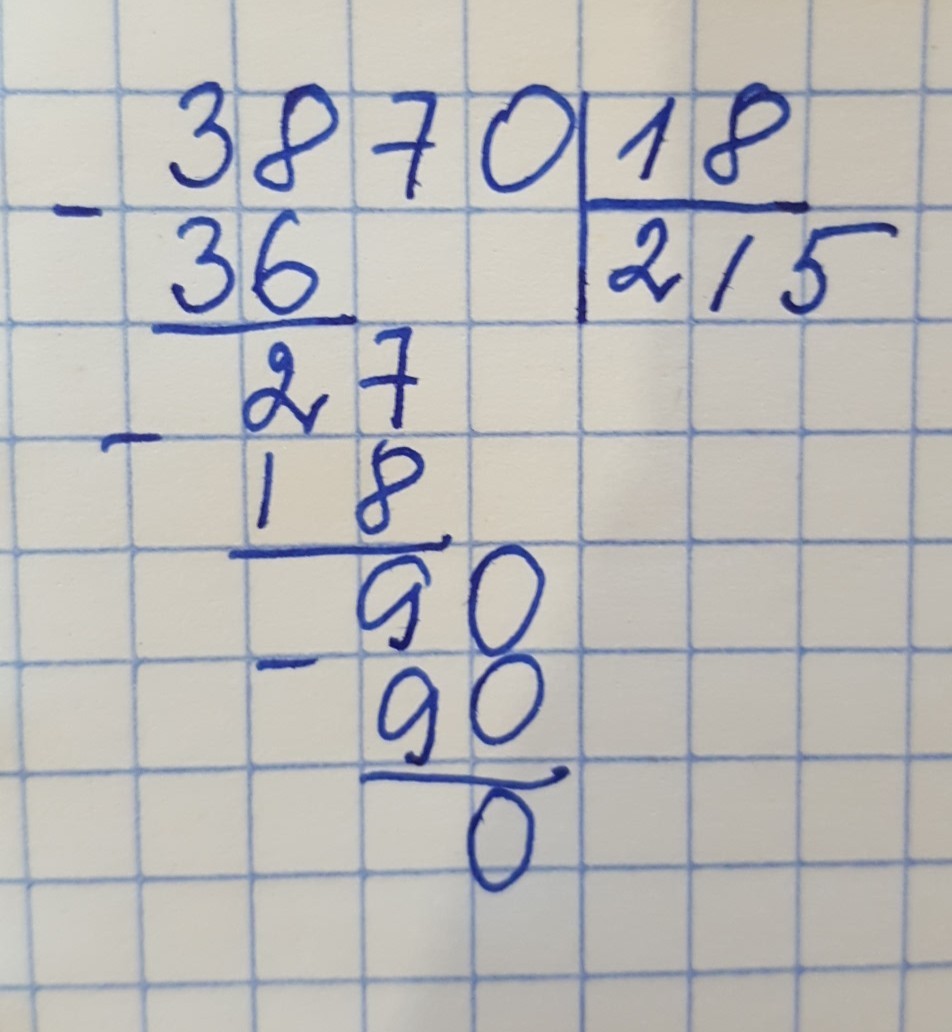 3870 18
- 36 215
27
- 18
90
- 90
0